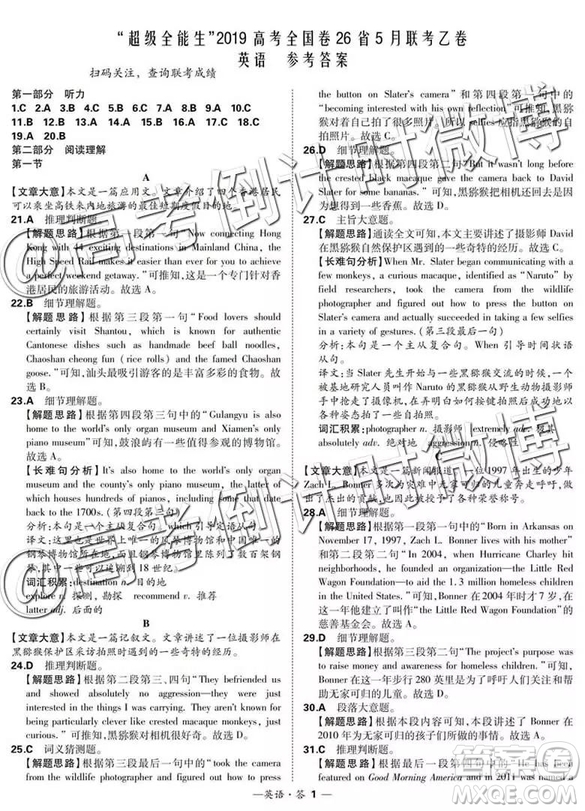 “超级全能生”2019高考全国卷26省5月联考乙卷
英语 参考答案
扫码关注，查询联考成绩
第一部分 听力
1.C 2.A 3.B 4.C 5.B 6.A 7.C 8.A 9.A 10.C
11.B 12.B 13.C 14.A 15.B 16.A 17.C 18.C
19.A 20.B
第二部分 阅读理解
第一节
A
【文章大意】本文是一篇应用文。文章介绍了香港居民
可以乘坐高铁往来内地旅游的几个景点。
21.A 推理判断题。
【解题思路】根据第一段第一句“Now connecting Hong
Kong with 44 exciting destinations in Mainland China, the
High Speed Rail makes it easier than ever for you to achieve
a perfect weekend getaway.”可推知，这是针对香
港居民的旅游活动。故选A。
22.B 细节理解题。
【解题思路】根据第三段第一句“Food lovers should
certainly visit Shantou, which is known for authentic
Cantonese dishes such as handmade beef ball noodles,
Chaoshan cheong fun (rice rolls) and the famed Chaoshan
cuisine.”可知，汕头最吸引游客的是丰富的食物。故选B。
23.A 细节理解题。
【解题思路】根据第四段第三句中的“Gulangyu is also
home to the world's only organ museum and Xiamen's only
piano museum”可知，鼓浪屿有一些值得参观的博物馆。
故选A。
【长难句分析】It's also home to the world's only organ
museum and the only piano museum, the latter of
which houses hundreds of pianos, some of which date
back to the 1700s. (第四段第四句)
分析:本句是一个主从复合句。which引导定语从句。
译文:这里也是世界上唯一的风琴博物馆和中国唯一的
钢琴博物馆所在地，钢琴博物馆里陈列了数百架钢
琴，其中一些可以追溯到18世纪。
词汇积累:destination n.目的地
explore v. 探测，勘探 recommend v. 推荐
latter adj. 后面的
B
【文章大意】本文是一篇记叙文。文章讲述了一位摄影师在
黑猕猴保护区采访拍照时的奇特的经历。
24.D 推理判断题。
【解题思路】根据第二段第三、四句“They befriended us
and showed absolutely no aggression—they were just
interested in the things I was carrying. They aren't known for
being particularly clever like crested macaque monkeys, just
curious.”可知，猕猴对人非常友好。故选D。
25.C 词义猜测题。
but on Slater's camera”及第四段第二句中的
“becoming interested with his own reflection”可推知，
Naruto用摄影师的相机拍了很多照片。所以selfies应为自
拍照片。故选C。
26.D 细节理解题。
【解题思路】根据第四段第二句“But it wasn't long before
the crested black macaque gave the camera back to David
Slater for some bananas.”可知，黑猕猴把相机还回去是因
为想得到一些香蕉。故选D。
27.C 主旨大意题。
【解题思路】通读全文可知，本文主要讲述了摄影师David
在黑猕猴自然保护区遇到的一些奇特的经历。故选C。
【长难句分析】When Mr. Slater began communicating with
a few monkeys, a curious macaque, identified as “Naruto” by
field researchers, came up to the wildlife photographer and
put Slater's camera to action and managed to take a few
selfies in a variety of gestures. (第三段最后一句)
分析:本句是一个主从复合句。When引导时间状语从
句。
译文:当Slater先生开始与一些黑猕猴交流时，一个
被基地研究人员叫做Naruto的猕猴走向野生动物摄影
师，抢走了他的相机，并成功地用各种姿势给自己
拍照。
词汇积累:photographer n. 摄影师 extremely adv. 极度地
absolutely adv. 绝对地 aggression n. 侵略
C
【文章大意】本文是一篇新闻报道。一位1997年出生的少年
Zach L. Bonner多次为灾难中无家可归的儿童奔走呼吁，
他也因此获得了各种荣誉称号。
28.A 细节理解题。
【解题思路】根据第一段第一句中的“Born in Arkansas on
November 17, 1997, Zach L. Bonner lives with his mother”
和第二段第二句“In 2004, when Hurricane Charley hit
neighborhoods, he founded the organization—the Little Red
Wagon Foundation—to aid the 1.3 million homeless children
in the United States.”可知，Bonner在2004年时才7岁，在
万圣节前创办了“the Little Red Wagon Foundation”的
慈善基金会。故选A。
29.D 细节理解题。
【解题思路】根据第三段第二句“The project's purpose was
to raise money and awareness for homeless children.”可知，
Bonner在一年内步行280英里是为了呼吁人们关注和帮
助无家可归的儿童。故选D。
30.A 段落大意题。
【解题思路】第四段主要讲述了Bonner在2010年前
后为帮助孩子们所做的事情。故选A。
英语·答 1